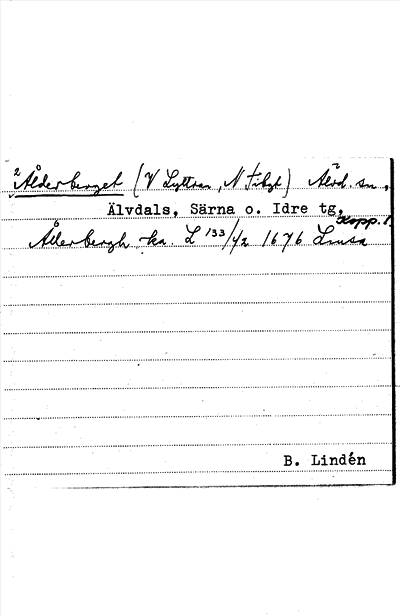 2 Ålderberget (V Lyttran, N Finbgt) Älvd. sn,
Älvdals, Särna o. Idre tg, Kopp. l.
Ållerbergh ka. L 133/42 1676 Lmsa
B. Lindén